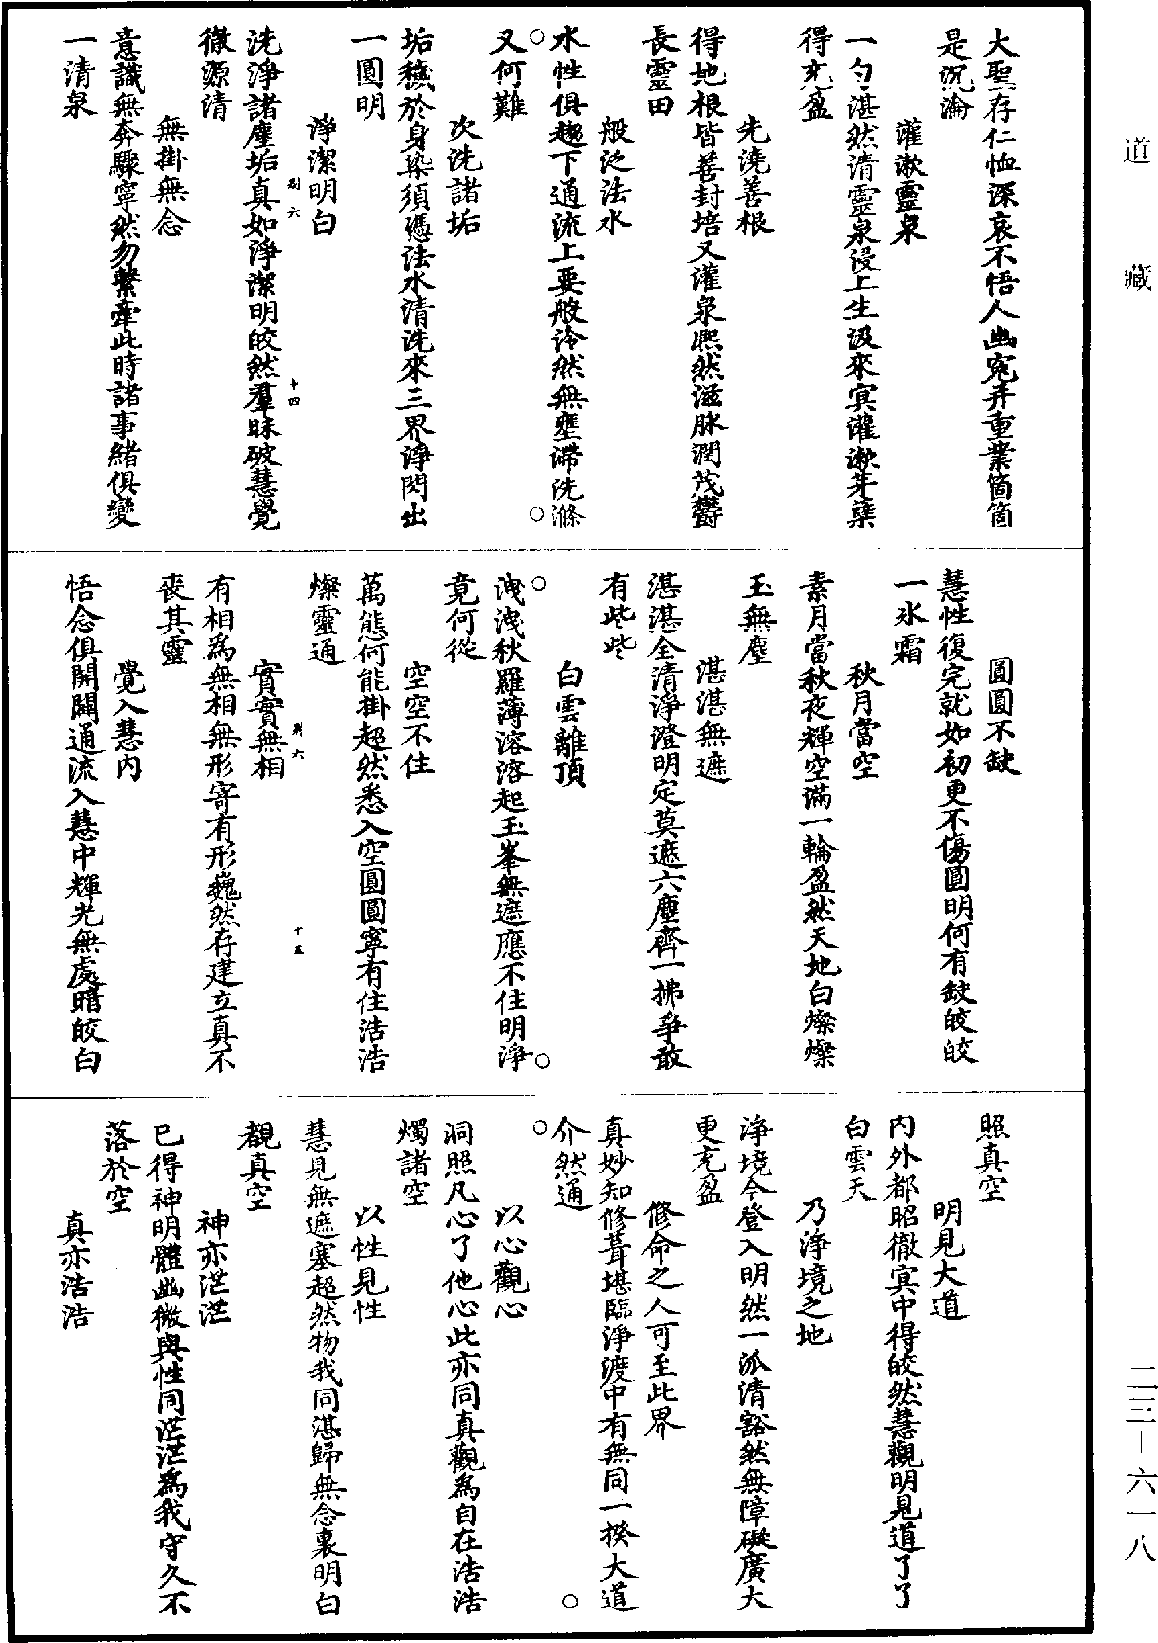 大聖存仁恤深哀不悟人幽寃并重業箇箇
是沉淪
灌漱靈泉
一勺湛然清靈泉侵上生汲來冥灌漱芽蘖
得充盈
先澆善根
得地根皆善封培又灌泉熙然滋脉潤茂鬱
長靈田
般泛法水
水性俱趨下通流上要般泠然無壅滯洗滌
又何難
次洗諸垢
垢穢於身染須憑法水清洗來三界淨閃出
一圓明
淨潔明白
洗淨諸塵垢真如淨潔明皎然羣昧破慧覺
徹源清
無掛無念
意識無奔驟寧然勿繫牽此時諸事緒俱變
一清泉
圓圓不缺
慧性復完就如初更不傷圓明何有缺皎皎
一氷霜
秋月當空
素月當秋夜輝空滿一輪盈然天地白燦燦
玉無塵
湛湛無遮
湛湛全清淨澄明定莫遮六塵齊一拂爭敢
有些些
白雲離頂
洩洩秋羅薄溶溶起玉峯無遮應不住明淨
竟何從
空空不住
萬態何能掛超然悉入空圓圓寧有住浩浩
燦靈通
實實無相
有相爲無相無形寄有形巍然存建立真不
喪其靈
覺入慧內
悟念俱開闢通流入慧中輝光無處暗皎白
照真空
明見大道
內外都昭徹冥中得皎然慧觀明見道了了
白雲天
乃淨境之地
淨境今登入明然一派清豁然無障礙廣大
更充盈
修命之人可至此界
真妙知修葺堪臨淨渡中有無同一揆大道
介然通
以心觀心
洞照凡心了他心此亦同真觀爲自在浩浩
燭諸空
以性見性
慧見無遮塞超然物我同湛歸無念裏明白
覩真空
神亦茫茫
已得神明體幽微與性同茫茫爲我守久不
落於空
真亦浩浩
道藏
二三－六一八